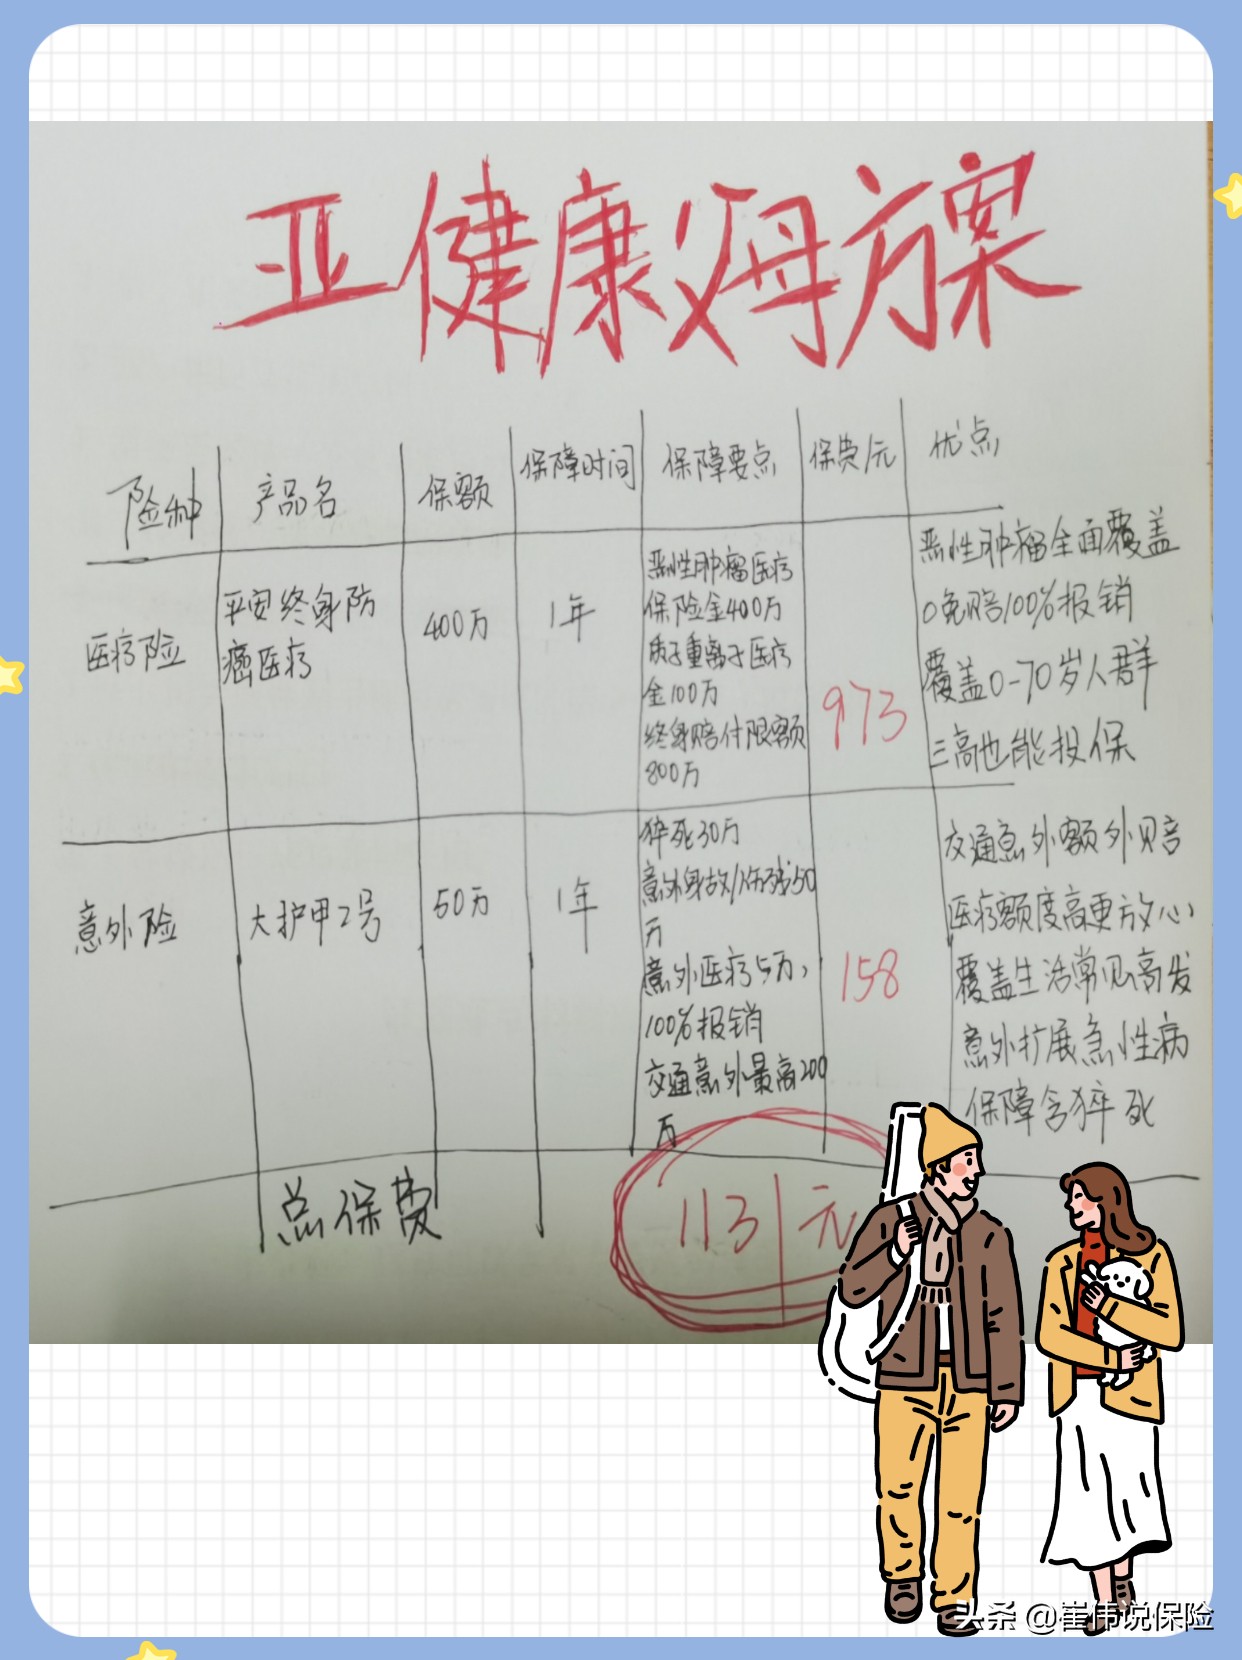 亚健康父母方案
险种 产品名 保额 保障时间 保障要点 保费/元 优点
医疗险
平安终身防
癌医疗
400万
1年
恶性肿瘤医疗
保险金400万
质子重离子医疗
金100万
终身赔付限额
800万
973
恶性肿瘤全面覆盖
0免赔100%报销
覆盖0-70岁人群
三高也能投保
意外险
大护甲2号
50万
1年
猝死30万
意外身故/伤残50
万
意外医疗5万,
100%报销
交通意外最高200
万
158
交通意外额外赔
医疗额度高更放心
覆盖生活常见高发
意外扩展急性病
保障含猝死
总保费
1131元
头条 @崔伟说保险